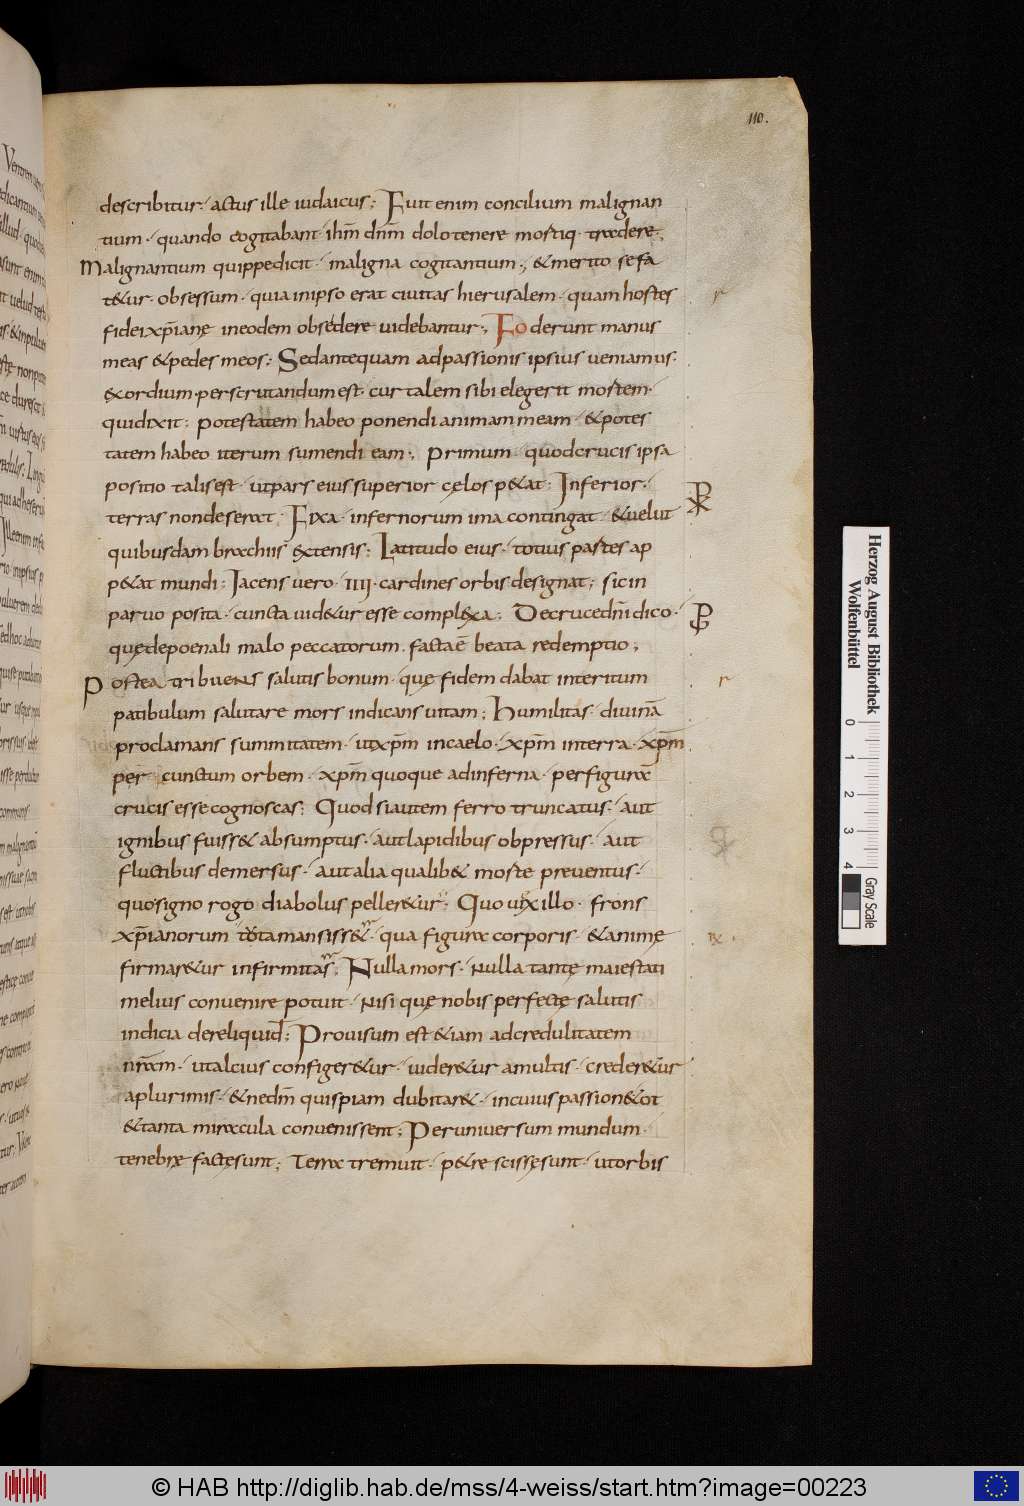 110.
describitur· actus ille iudaicus; Fuit enim concilium malignan
tium· quando cogitabant· ihm̄ dnm̄ dolo tenere mortiq· tradere·
Malignantium quippe dicit· maligna cogitantium·, & merito se fa
t&ur· obsessum· quia in ipso erat ciuitas hierusalem· quam hostes
fidei xp̄ianę in eodem obsedere uidebantur·, Foderunt manus
meas & pedes meos: Sed antequam ad passionis ipsius ueniamus·
exordium· perscrutandum est· cur talem sibi elegerit mortem·
qui dixit: potestatem habeo ponendi animam meam· & potes
tatem habeo iterum sumendi eam·, primum· quod crucis ipsa
positio talis est· ut pars eius superior cęlos p&at: Inferior·
terras non deserat· Fixa· infernorum ima contingat· & uelut
quibusdam brachiis extensis: Latitudo eius· totius partes ap
p&at mundi: Iacens uero· IIII· cardines orbis designat; sic in
paruo posita· cuncta uid&ur esse complexa; De cruce dn̄i dico·
quę de poenali malo peccatorum· facta ē beata redemptio;
Postea tribuens salutis bonum· quę fidem dabat interitum
patibulum salutare mors indicans uitam; humilitas· diuinā
proclamans summitatem· ut xp̄m in caelo· xp̄m in terra· xp̄m
per cunctum orbem· xp̄m quoque ad inferna· per figurā
crucis esse cognoscas; Quod si autem ferro truncatus· aut
ignibus fuiss& absumptus· aut lapidibus obpressus· aut
fluctibus demersus· aut alia qualib& morte preuentus·
quo signo rogo diabolus peller&ur· Quo uexillo· frons
xp̄ianorum tota mansiss&· qua figura corporis· & animę
firmar&ur infirmitas; Nulla mors· nulla tantę maiestati
melius conuenire potuit· nisi quę nobis perfectę salutis
indicia dereliquid: Prouisum est &iam ad credulitatem
nr̄am· ut alcius configer&ur· uider&ur a multis· creder&ur
a plurimis· & nedm̄ quispiam dubitar&· in cuius passion& ot
& tanta miracula conuenissent; Per uniuersum mundum·
tenebrę factę sunt; Terra tremuit· p&re scissę sunt· ut orbis
Herzog August Bibliothek
Wolfenbüttel
0 1 2 3 4
Gray Scale
© HAB http://diglib.hab.de/mss/4-weiss/start.htm?image=00223